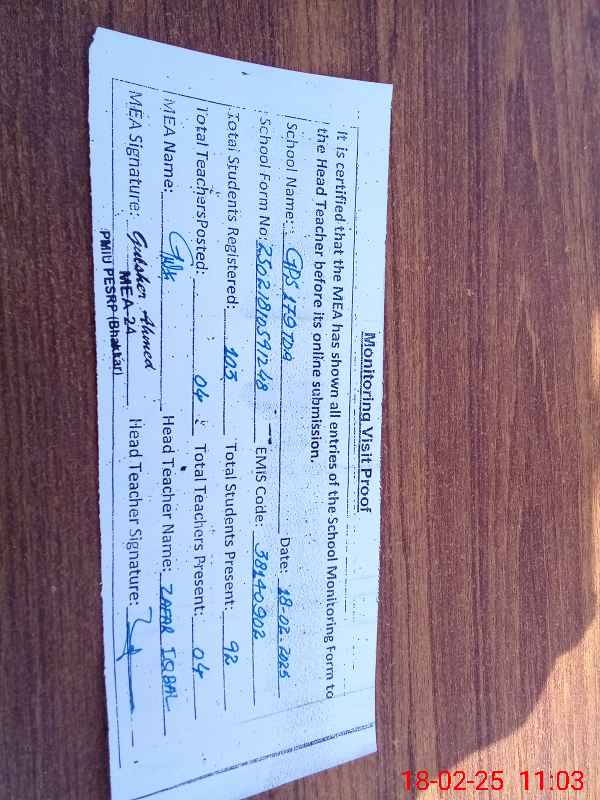 Monitoring Visit Proof
It is certified that the MEA has shown all entries of the School Monitoring Form to
the Head Teacher before its online submission.
School Name: GPS 179 TDA Date: 18-02-2025
School Form No: 2502181059 1248 EMIS Code: 38140902
Total Students Registered: 103 Total Students Present: 92
Total TeachersPosted: 04 Total Teachers Present: 04
MEA Name: Head Teacher Name: ZAFAR IQBAL
MEA Signature: Gulsher Ahmed Head Teacher Signature:
MEA-24
PMIU PESRP (Bhakkar)
18-02-25 11:03